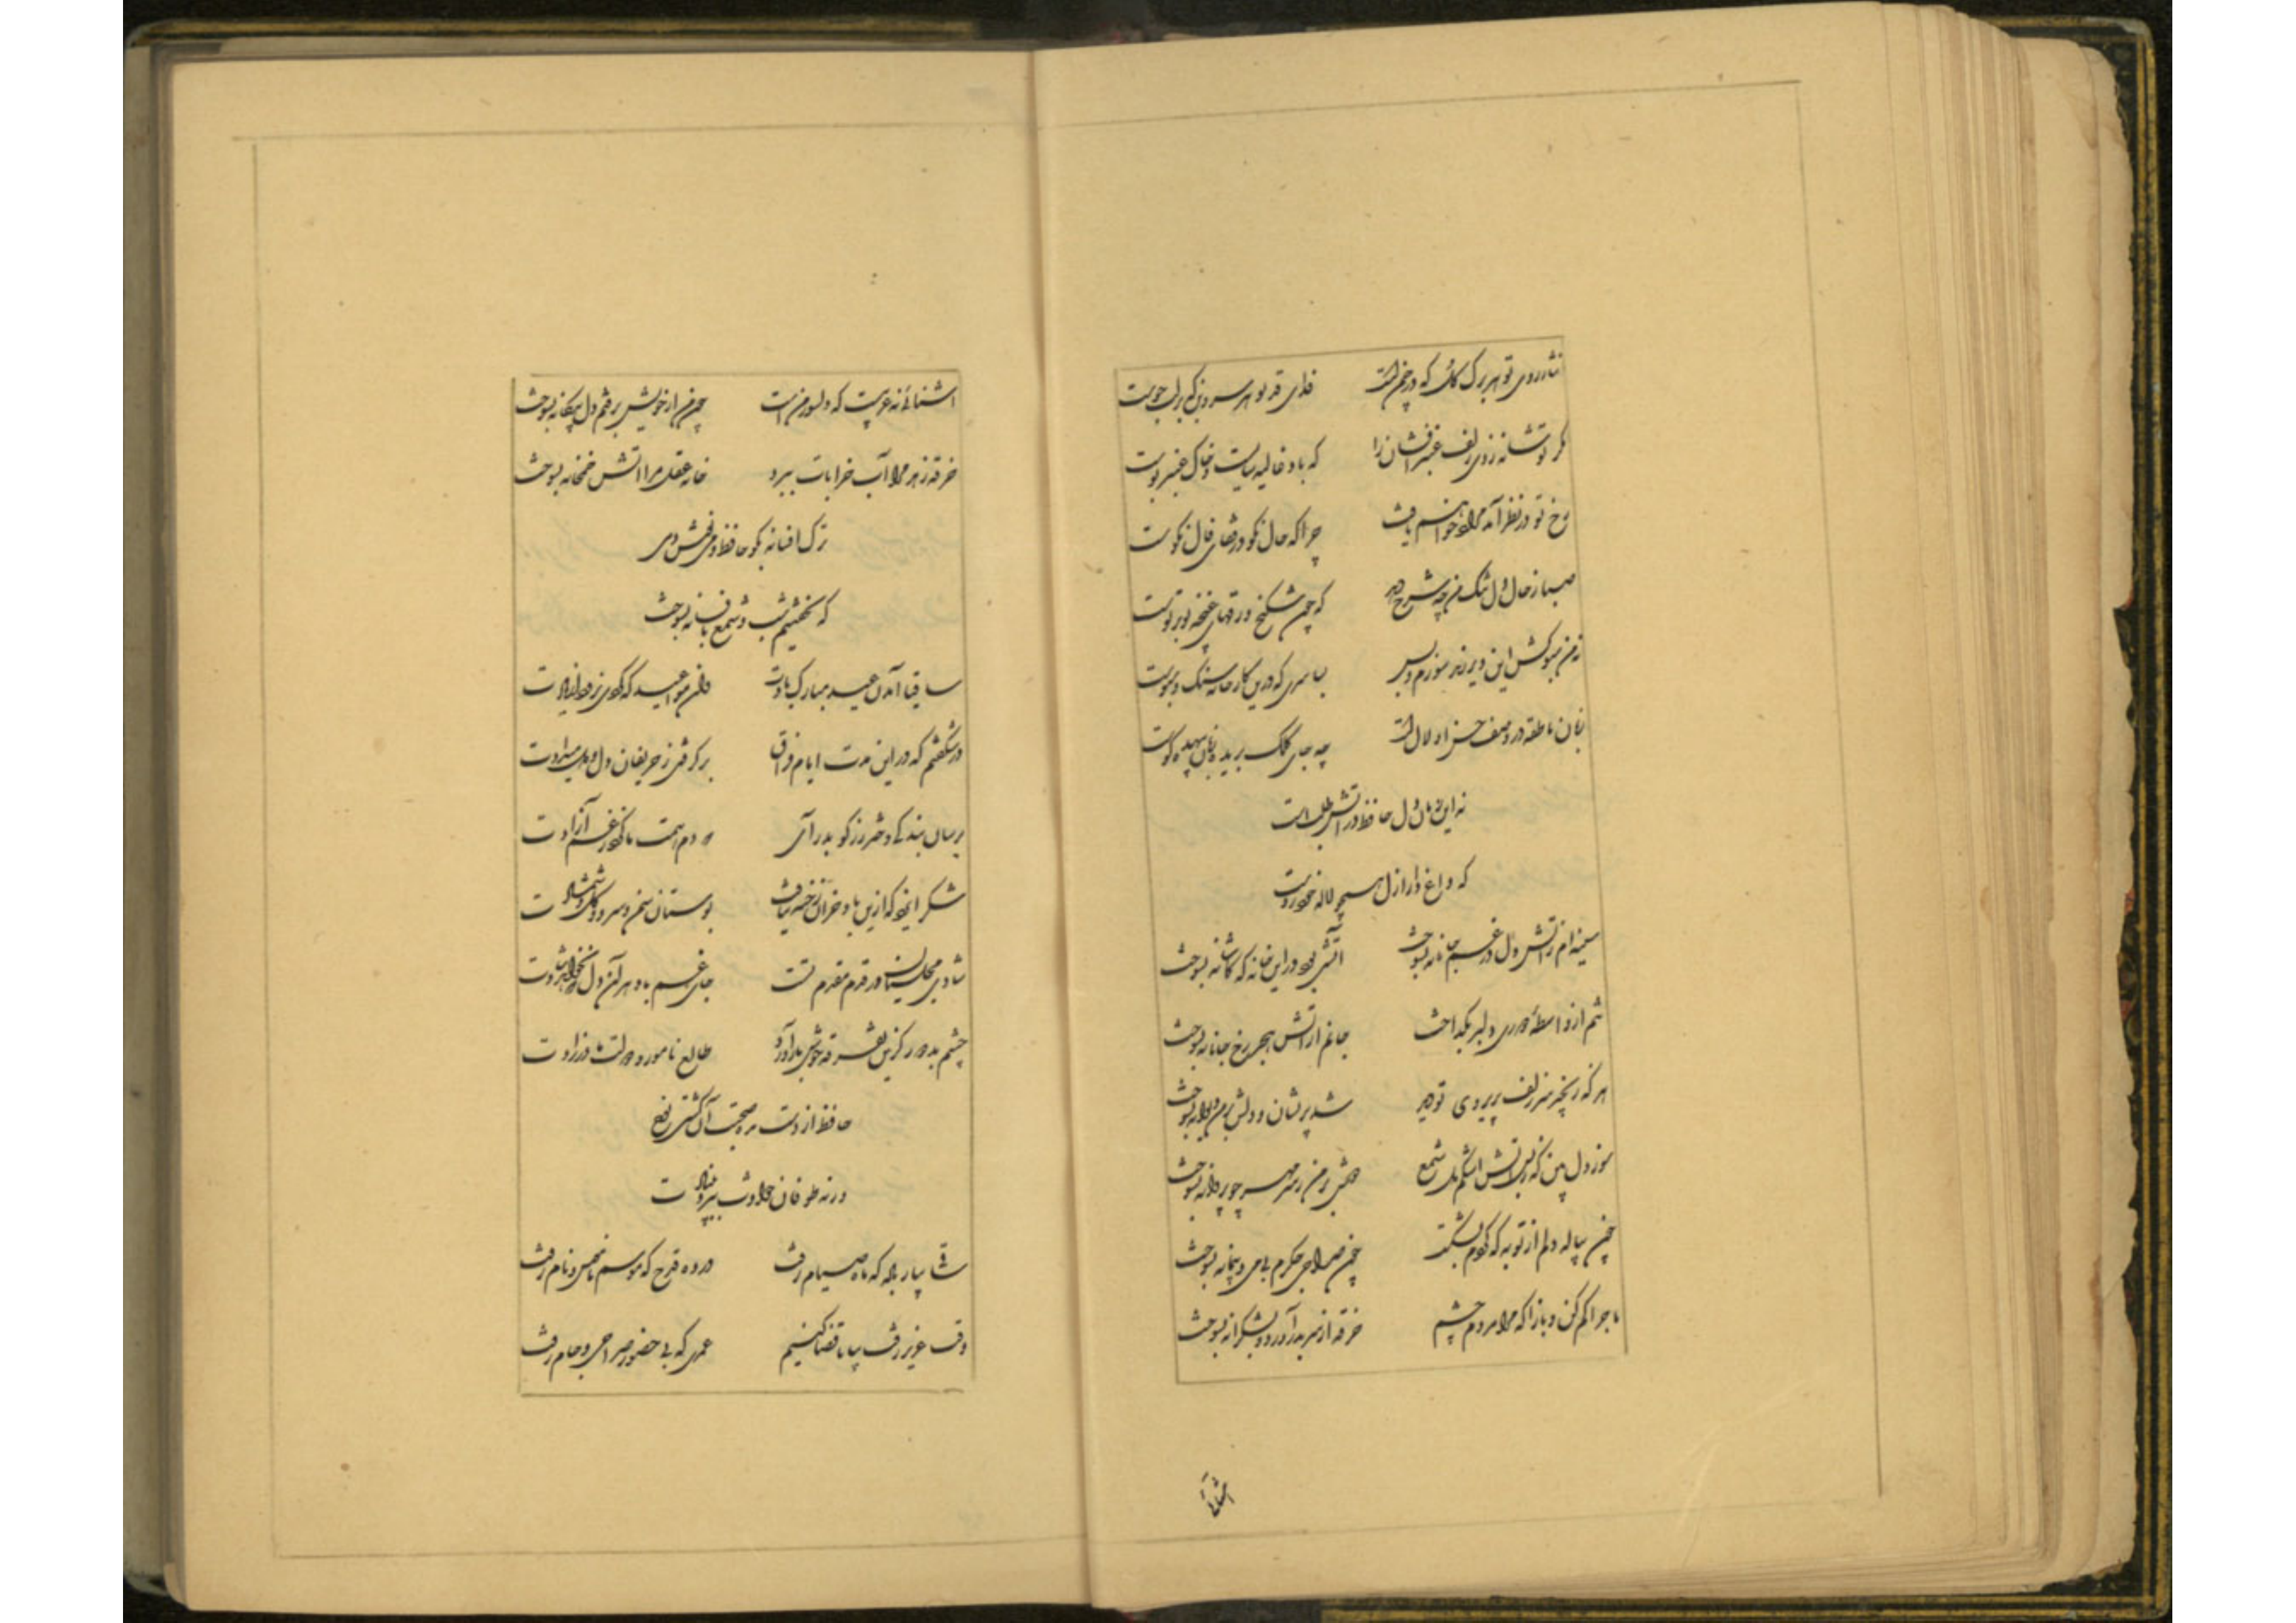 نثار روی تو هر برگ گل که در چمن است فدای قد تو هر سرو بن که بر لب جوست
مگر تو شانه زدی زلف عنبرافشان را که باد غالیه سایست و خاک عنبر بوست
رخ تو در نظر آمد مراد خواهم یافت چرا که حال نکو در قفای فال نکوست
صبا ز حال دل تنگ من چه شرح دهد که چون شکنج ورقهای غنچه تو بر توست
نه من سبوکش این دیر رند سوزم و بس بسا سری که درین کارخانه سنگ و سبوست
زبان ناطقه در وصف حسن او لال است چه جای کلک بریده زبان بیهده گوست
نه این زمان دل حافظ در آتش طلب است
که داغ دار ازل همچو لاله خودروست
سینه ام ز آتش دل در غم جانانه بسوخت آتشی بود در این خانه که کاشانه بسوخت
تنم از واسطهٔ دوری دلبر بگداخت جانم از آتش هجر رخ جانانه بسوخت
هر که زنجیر سر زلف پریروی تو دید شد پریشان و دلش بر من دیوانه بسوخت
سوز دل بین که ز بس آتش اشکم دل شمع دوش بر من ز سر مهر چو پروانه بسوخت
چون پیاله دلم از توبه که کردم بشکست چون صراحی جگرم بی می و پیمانه بسوخت
ماجرا کم کن و بازآ که مرا مردم چشم خرقه از سر بدر آورد و بشکرانه بسوخت
آشنائی
آشنائی نه غریبست که دلسوز من است چون من از خویش برفتم دل بیگانه بسوخت
خرقه زهد مرا آب خرابات ببرد خانه عقل مرا آتش خمخانه بسوخت
ترک افسانه بگو حافظ و می نوش دمی
که نخفتیم شب و شمع بافسانه بسوخت
ساقیا آمدن عید مبارک بادت وان مواعید که کردی نرود از یادت
در شگفتم که در این مدت ایام فراق برگرفتی ز حریفان دل و دل میدادت
برسان بندگی دختر رز گو بدر آی که دم همت ما کرد ز غم آزادت
شکر ایزد که ازین باد خزان رخنه نیافت بوستان سمن و سرو و گل و شمشادت
شادی مجلسیان در قدم مقدم تست جای غم باد هر آن دل که نخواهد شادت
چشم بد دور کزین تفرقه خوش باز آورد طالع نامور و دولت مادرزادت
حافظ از دست مده صحبت آن کشتی نوح
ورنه طوفان حوادث ببرد بنیادت
ساقی بیار باده که ماه صیام رفت درده قدح که موسم ناموس و نام رفت
وقت عزیز رفت بیا تا قضا کنیم عمری که بی حضور صراحی و جام رفت